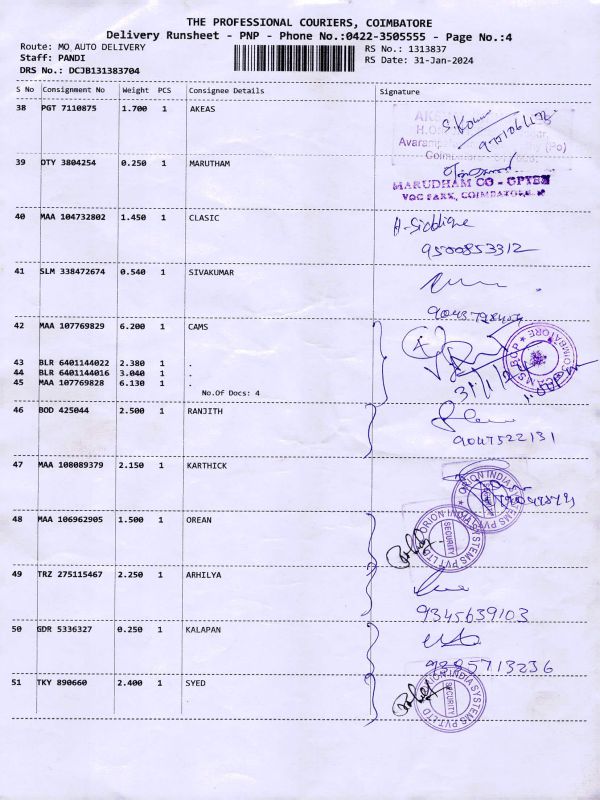 THE PROFESSIONAL COURIERS, COIMBATORE
Delivery Runsheet - PNP - Phone No.:0422-3505555 - Page No.:4
Route: MO AUTO DELIVERY
RS No.: 1313837
Staff: PANDI
RS Date: 31-Jan-2024
DRS No.: DCJB131383704
S No Consignment No Weight PCS Consignee Details Signature
38 PGT 7110875 1.700 1 AKEAS
S.Kumar
39 OTY 3804254 0.250 1 MARUTHAM
MARUDHAM CO - OPTEX
VOC PARK, COIMBATORE
40 MAA 104732802 1.450 1 CLASIC
A-Siddique
9500853312
41 SLM 338472674 0.540 1 SIVAKUMAR
42 MAA 107769829 6.200 1 CAMS
43 BLR 6401144022 2.380 1 .
44 BLR 6401144016 3.040 1 .
45 MAA 107769828 6.130 1 .
No.Of Docs: 4
46 BOD 425044 2.500 1 RANJITH
9047522131
47 MAA 108089379 2.150 1 KARTHICK
ORION INDIA SYSTEMS PVT LTD
48 MAA 106962905 1.500 1 OREAN
ORION INDIA SYSTEMS PVT LTD
SECURITY
49 TRZ 275115467 2.250 1 ARHILYA
9345639103
50 GDR 5336327 0.250 1 KALAPAN
9385713236
51 TKY 890660 2.400 1 SYED
ORION INDIA SYSTEMS PVT.LTD
SECURITY